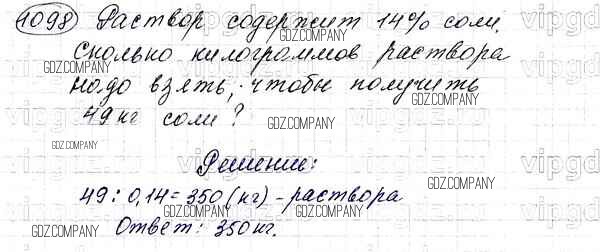 1098 Раствор содержит 14% соли.
Сколько килограммов раствора
надо взять, чтобы получить
49 кг соли?
Решение:
49 : 0,14 = 350 (кг) - раствора
Ответ: 350 кг.
GDZ.COMPANY
GDZ.COMPANY
GDZ.COMPANY
GDZ.COMPANY
GDZ.COMPANY
GDZ.COMPANY
GDZ.COMPANY
GDZ.COMPANY
GDZ.COMPANY